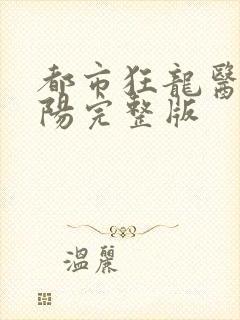 都市狂龍醫
陽完整版
溫麗